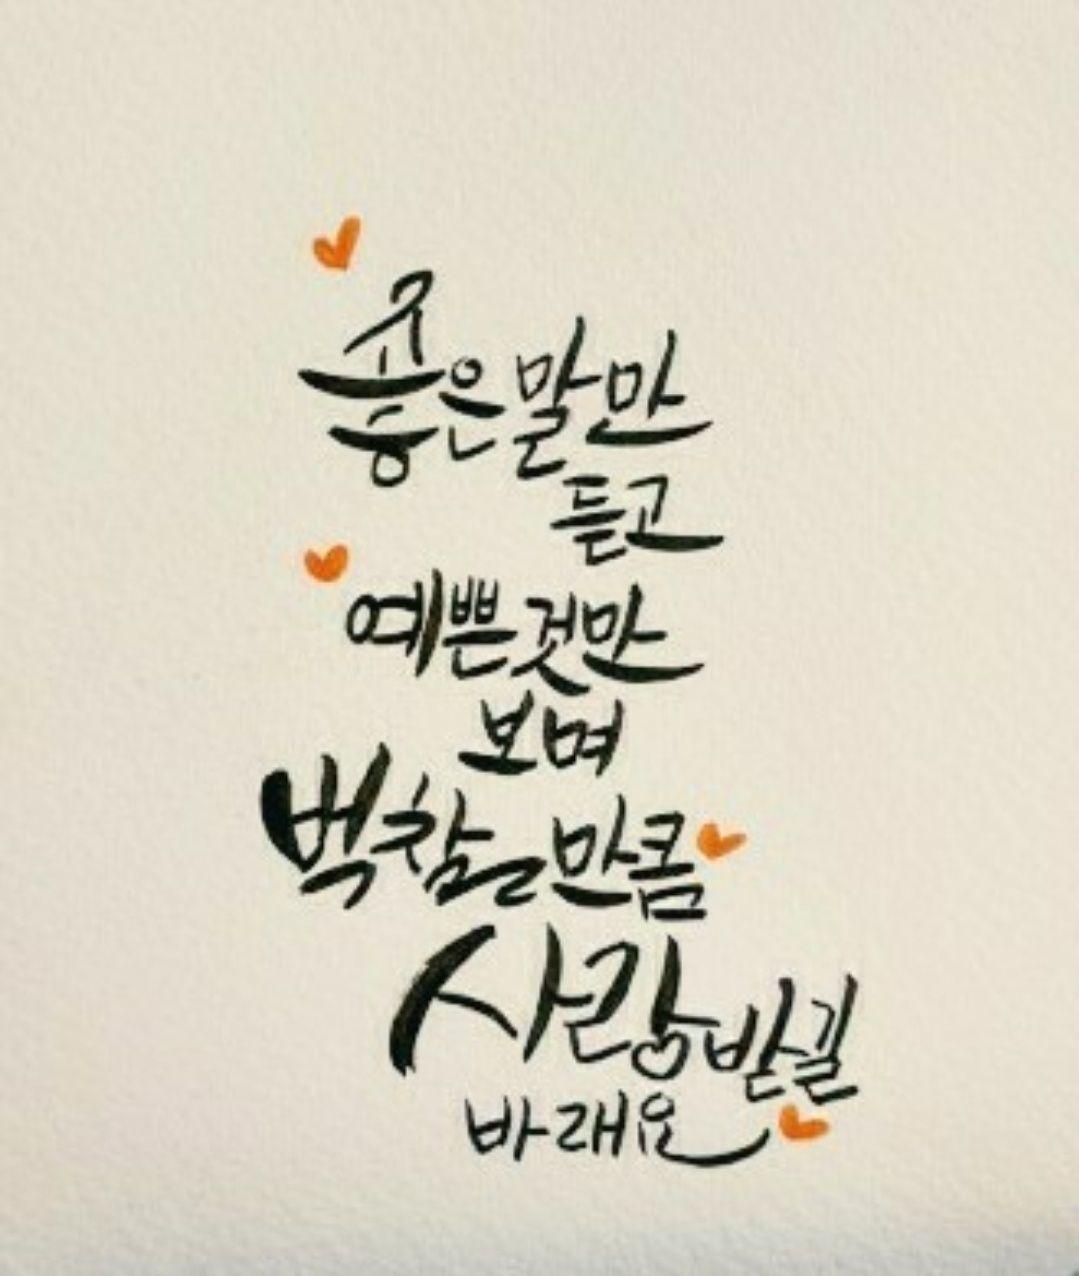 좋은 말만
듣고
예쁜 것만
보며
벅찰 만큼
사랑 받길
바래요